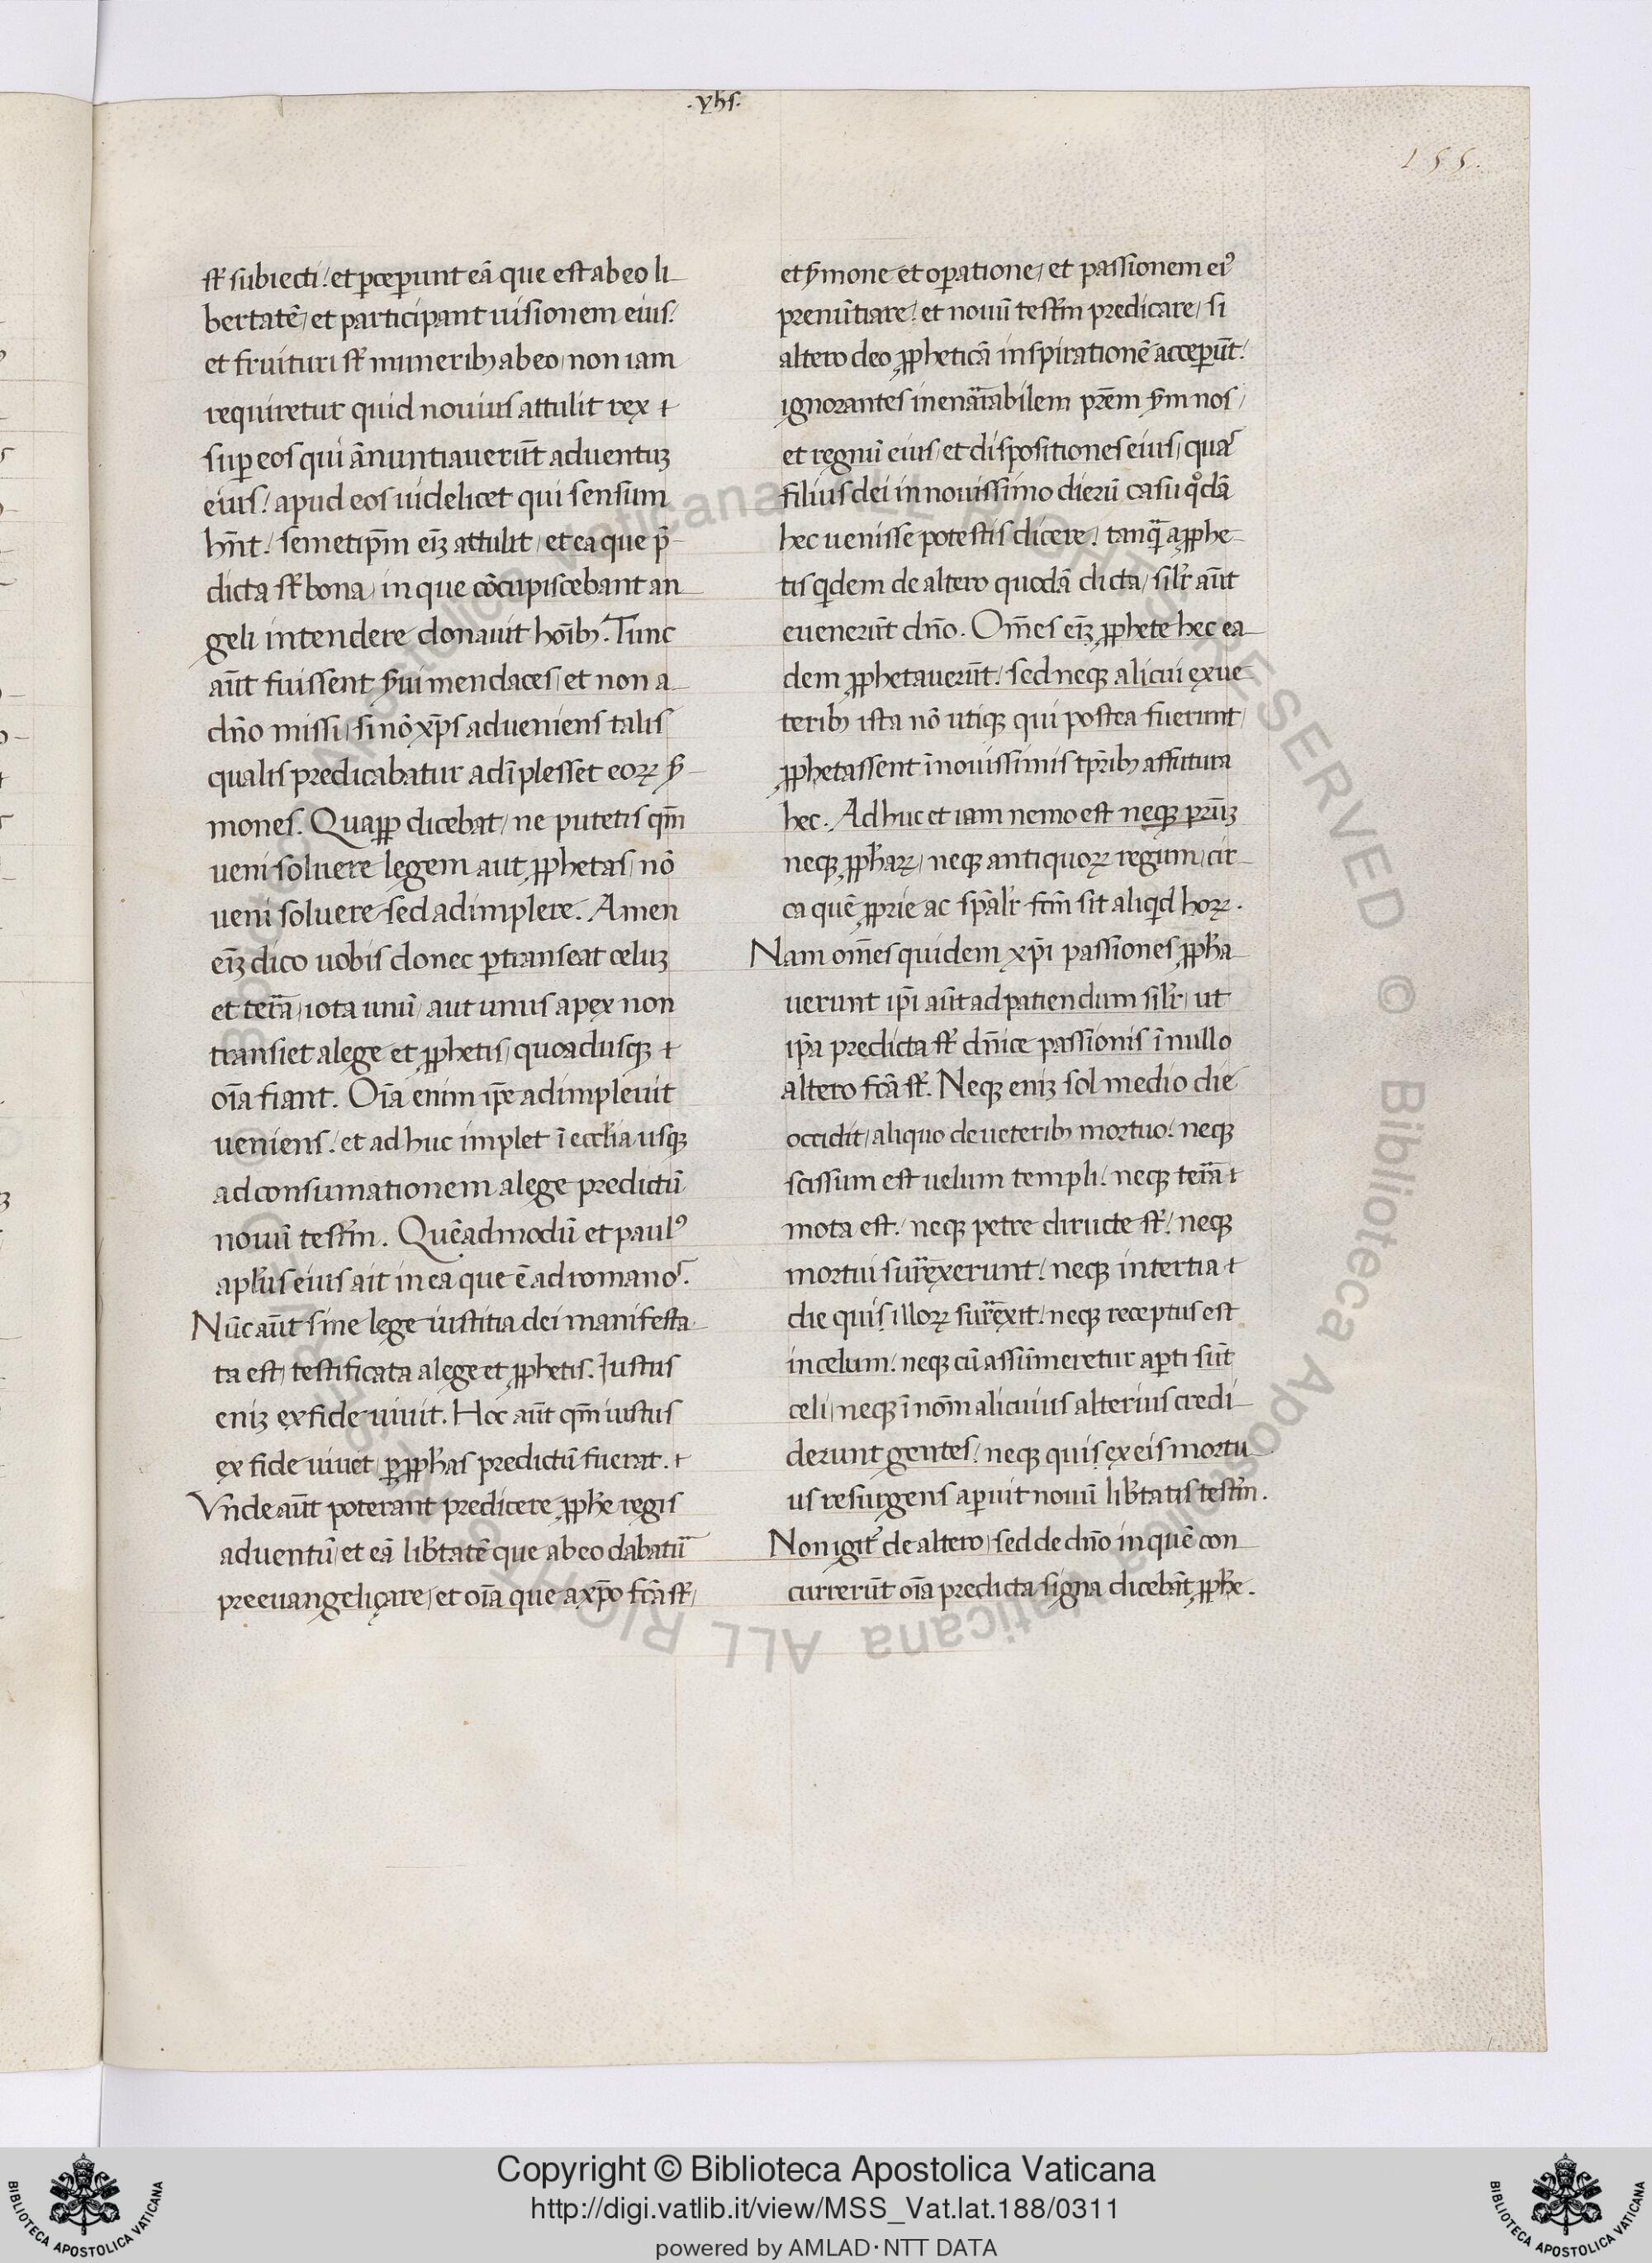 .yhs.
155.
sr̃ subiecti / et ꝑceperunt eã que est ab eo li
bertatẽ / et participant uisionem eius /
et fruituri sr̃ munerib; ab eo / non iam
requiretur quid nouius attulit rex
super eos qui ãnuntiauerũt aduentuꝫ
eius / apud eos uidelicet qui sensum
hñt / semetip̃m eĩꝫ attulit / et ea que p̃
dicta sr̃ bona / in que cõcupiscebant an
geli intendere donauit hoĩb;. Tunc
aũt fuissent ẏui mendaces / et non a
dño missi / si nõ xp̃s adueniens talis
qualis predicabatur adĩplesset eoꝝ ẏ
mones. Quaꝓꝑ dicebat / ne putetis qm̃
ueni soluere legem aut ꝓphetas / nõ
ueni soluere sed adimplere. Amen
eĩꝫ dico uobis donec ꝑtranseat celuꝫ
et terã / iota unũ / aut unus apex non
transiet a lege et ꝓphetis / quoadusqꝫ
oĩa fiant. Oĩa enim ip̃e adimpleuit
ueniens / et ad huc implet ĩ ecclĩa usqꝫ
ad consumationem a lege predictũ
nouũ testm̃. Quẽadmodũ et paulꝰ
apl̃us eius ait in ea que ẽ ad romanos.
Nũc aũt sine lege iustitia dei manifesta
ta est / testificata a lege et ꝓphetis. Iustus
eniꝫ ex fide uiuit. Hoc aũt qm̃ iustus
ex fide uiuet / ꝑ ꝓph̃as predictũ fuerat.
Vñde aũt poterant predicere ꝓph̃e regis
aduentũ / et eã lib̃tatẽ que ab eo dabatur̃
preeuangeliçare / et oĩa que a xp̃o fcã sr̃ /
et ẏmone et oꝑatione / et passionem eiꝰ
prenũtiare / et nouũ testm̃ predicare / si
altero deo ꝓpheticã inspirationẽ acceperũt /
ignorantes inenarrabilem prẽm ẏm nos /
et regnũ eius / et dispositiones eius / quas
filius dei in nouissimo dierũ casu qͦdã
hec uenisse potestis dicere / tanq̃ a ꝓphe
tis qdem de altero quodã dicta / silr̃ aũt
euenerũt dño. Oms̃ eĩꝫ ꝓphete hec ea
dem ꝓphetauerũt / sed neqꝫ alicui ex ue
terib; ista nõ utiqꝫ qui postea fuerunt /
ꝓphetassent ĩ nouissimis tp̃rib; affutura
hec. Adhuc et iam nemo est neqꝫ prũꝫ
neqꝫ ꝓph̃aꝝ / neqꝫ antiquoꝝ regum / cir
ca quẽ ꝓprie ac sp̃alr̃ fcm̃ sit aliqd hoꝝ.
Nam om̃es quidem xp̃i passiones ꝓph̃a
uerunt ip̃i aũt ad patiendum silr̃ / ut
ip̃a predicta sr̃ dñice passionis ĩ nullo
altero fcã sr̃. Neqꝫ eniꝫ sol medio die
occidit / aliquo de ueterib; mortuo / neqꝫ
scissum est uelum templi / neqꝫ terã
mota est / neqꝫ petre dirupte sr̃ / neqꝫ
mortui surrexerunt / neqꝫ in tertia
die quis illoꝝ surrexit / neqꝫ receptus est
in celum / neqꝫ cũ assũmeretur aꝑti sũt
celi / neqꝫ ĩ noĩm alicuius alterius credi
derunt gentes / neqꝫ quis ex eis mortu
us resurgens aꝑuit nouũ lib̃tatis testm̃.
Non igit̃ de altero / sed de dño in quẽ con
currerũt oĩa predicta signa dicebãt ꝓph̃e.
Copyright © Biblioteca Apostolica Vaticana
http://digi.vatlib.it/view/MSS_Vat.lat.188/0311
powered by AMLAD·NTT DATA
BIBLIOTECA APOSTOLICA VATICANA
BIBLIOTECA APOSTOLICA VATICANA